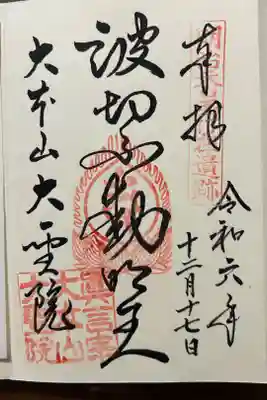 奉拝
令和六年
十二月十七日
波切不動明王
大本山大聖院
眞言宗
大本山
大聖院